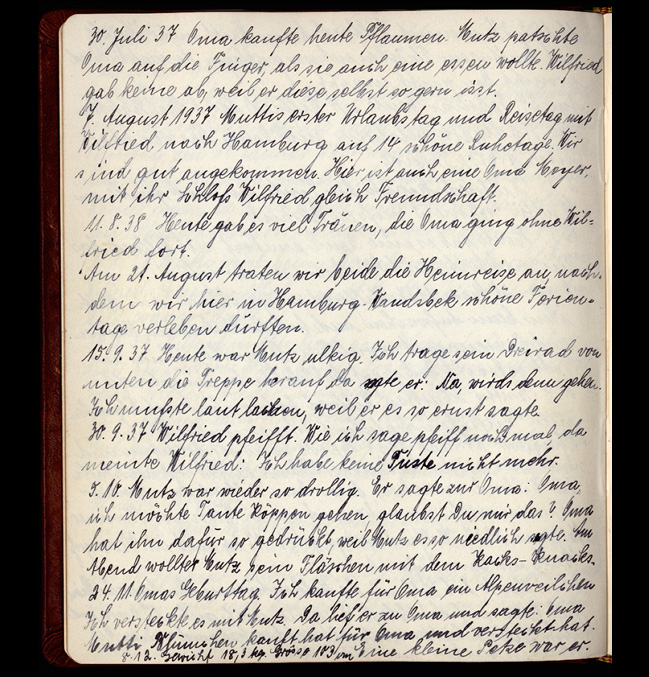 30. Juli 37 Oma kaufte heute Pflaumen. Mutz patschte
Oma auf die Finger, als sie auch eine essen wollte. Wilfried
gab keine ab, weil er diese selbst so gern isst.
7. August 1937 Muttis erster Urlaubstag und Reisetag mit
Wilfried nach Hamburg auf 14 schöne Ruhetage. Wir
sind gut angekommen. Hier ist auch eine Oma Meyer,
mit ihr schloss Wilfried gleich Freundschaft.
11.8.38 Heute gab es viel Tränen, die Oma ging ohne Wil=
fried fort.
Am 21. August traten wir beide die Heimreise an, nach-
dem wir hier in Hamburg-Wandsbek schöne Ferien=
tage verleben durften.
15.9.37 Heute war Mutz ulkig. Ich trage sein Dreirad von
unten die Treppe herauf da sagte er: Na, wirds denn gehen.
Ich musste laut lachen, weil er es so ernst sagte.
30.9.37 Wilfried pfeifft. Wie ich sage pfeiff nochmal, da
meinte Wilfried: Ich habe keine Puste nicht mehr.
5.10. Mutz war wieder so drollig. Er sagte zur Oma: Oma,
ich möchte Tante Köppen gehen, glaubst Du mir das? Oma
hat ihn dafür so gedrückt, weil Mutz es so niedlich sagte. Am
Abend wollte Mutz sein Fläschen mit dem Knacks-Knacks.
24.11. Omas Geburttag. Ich kaufte für Oma ein Alpenveilchen
Ich versteckte es mit Mutz. Da lief er zu Oma und sagte: Oma
Mutti Blümchen kauft hat für Oma und versteckt hat.
8.12. Gewicht 18,3 kg. Grösse 103 cm Eine kleine Petze war er.